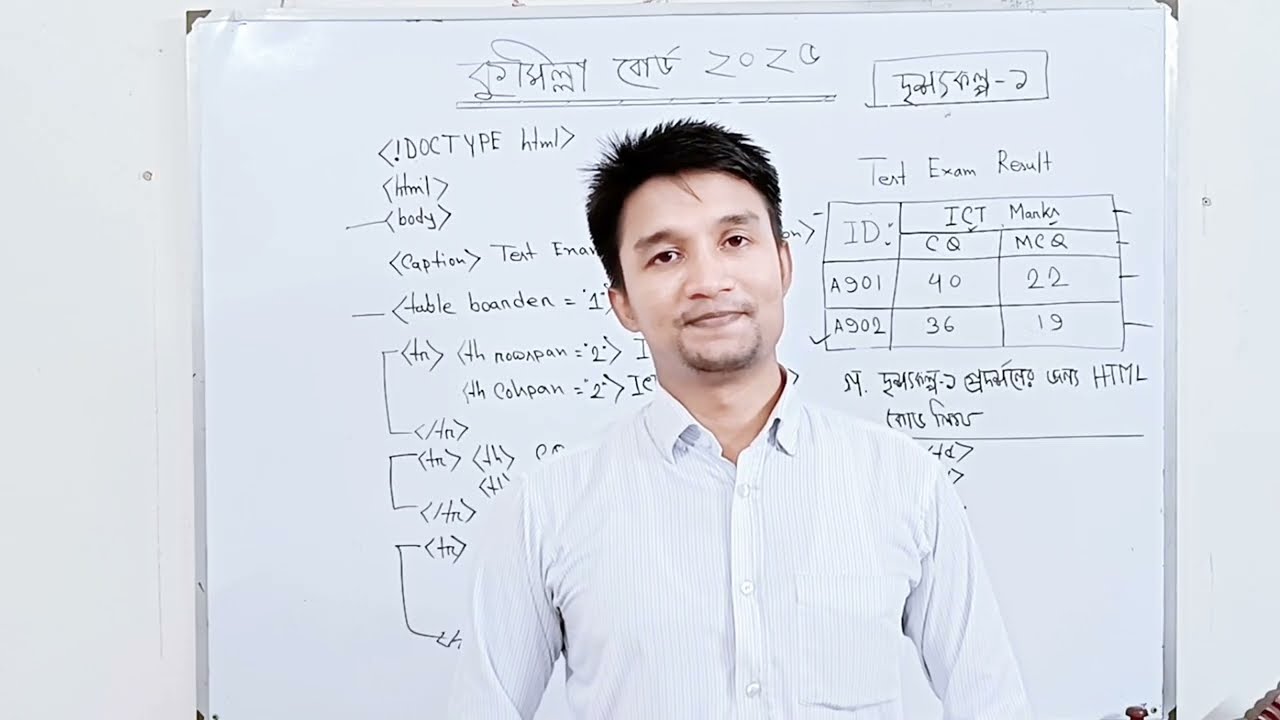 কুমিল্লা বোর্ড ২০২৫
দৃশ্যকল্প-১
<!DOCTYPE html>
<html>
<body>
<Caption> Test Exam
<table boarder = "1">
<tr> <th rowspan = "2"> I
<th Colspan = "2"> ICT
</tr>
<tr> <th>
</tr>
<tr>
Test Exam Result
ID: ICT Marks
CQ MCQ
A901 40 22
A902 36 19
গ. দৃশ্যকল্প-১ প্রদর্শনের জন্য HTML
কোড লিখ